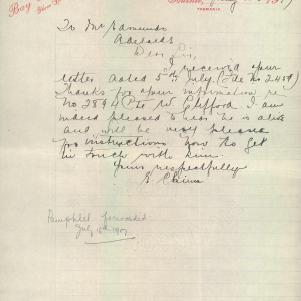 Bay
TASMANIA
To Mr Edmunds
Adelaide
Dear Sir,
I received your
letter dated 5th July (File No 2459)
Thanks for your information re
No 2894 Pte W. Clifford I am
indeed pleased to hear he is alive
and will be very pleased
for instructions how to get
in touch with him
Yours respectfully
Pamphlet forwarded
July 18th 1917